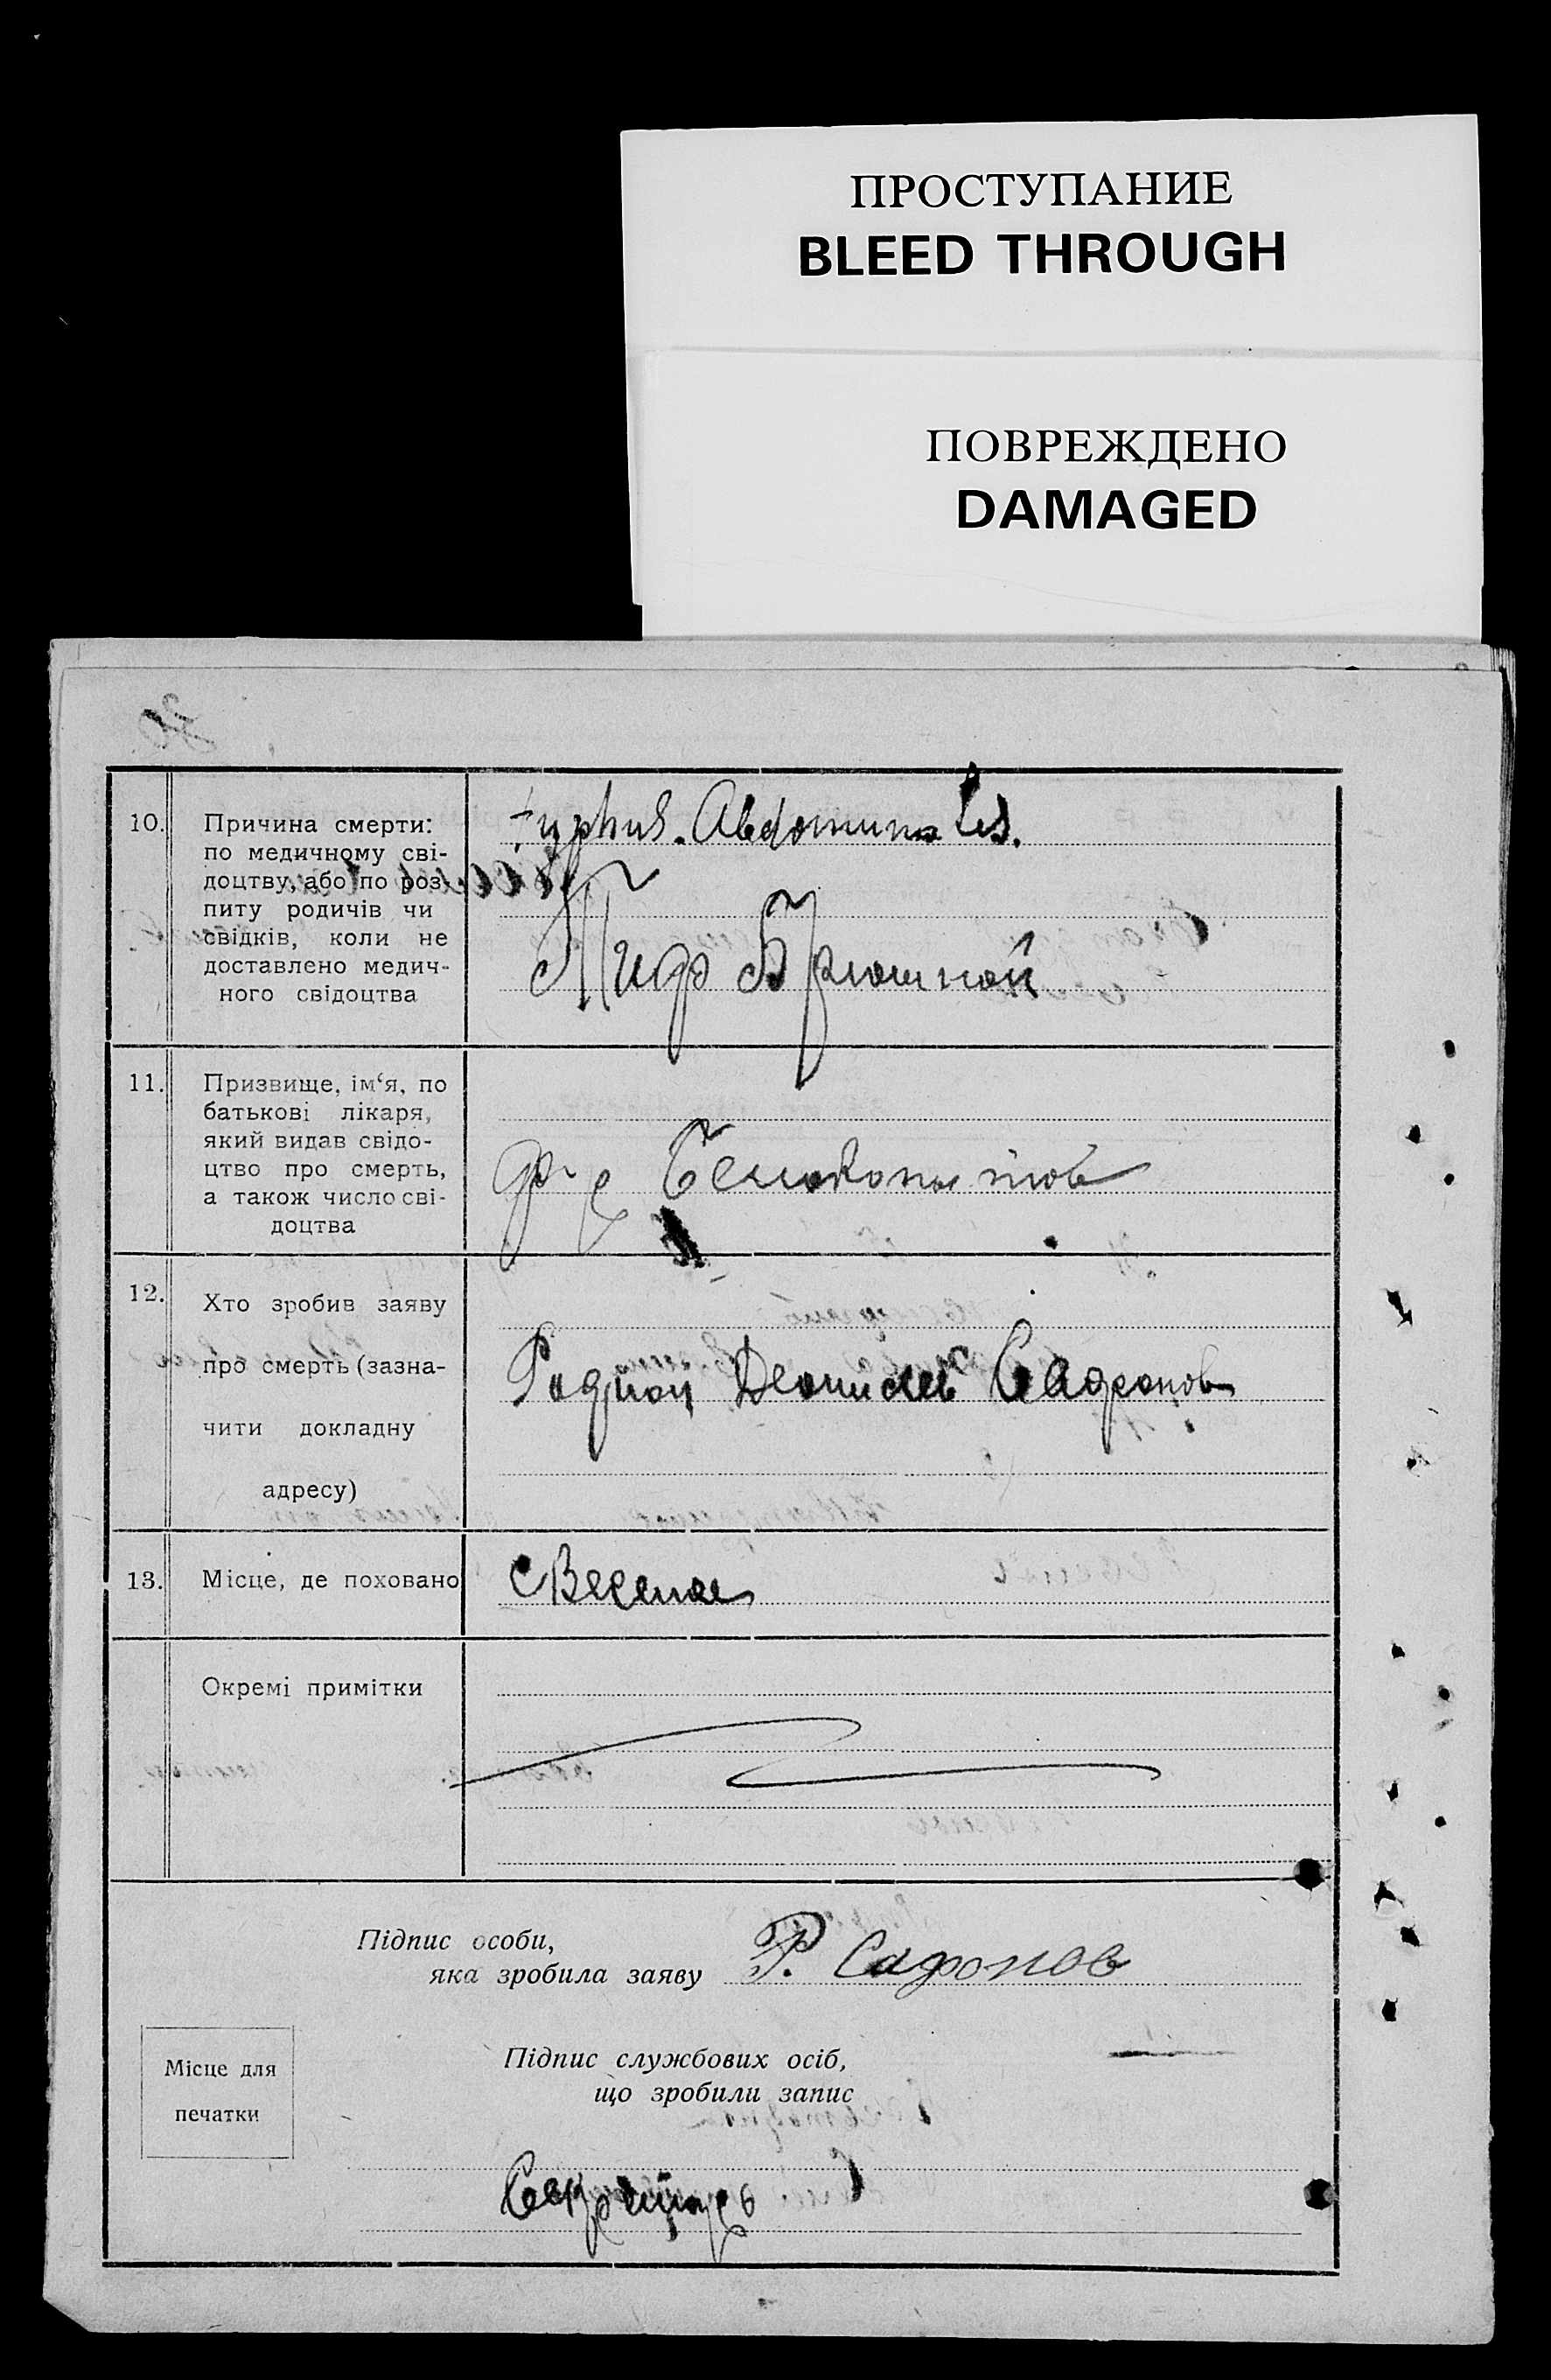 ПРОСТУПАНИЕ
BLEED THROUGH
ПОВРЕЖДЕНО
DAMAGED
10. Причина смерти:
по медичному сві-
доцтву, або по роз-
питу родичів чи
свідків, коли не
доставлено медич-
ного свідоцтва
typhus. Abdominales.
Тиф Брюшной
11. Призвище, ім‘я, по
батькові лікаря,
який видав свідо-
цтво про смерть,
а також число сві-
доцтва
др Белокопытов
12. Хто зробив заяву
про смерть (зазна-
чити докладну
адресу)
Родион Деонисиев Сафронов
13. Місце, де поховано
с Веселое
Окремі примітки
Підпис особи,
яка зробила заяву Р. Сафонов
Місце для
печатки
Підпис службових осіб,
що зробили запис
Секретарь